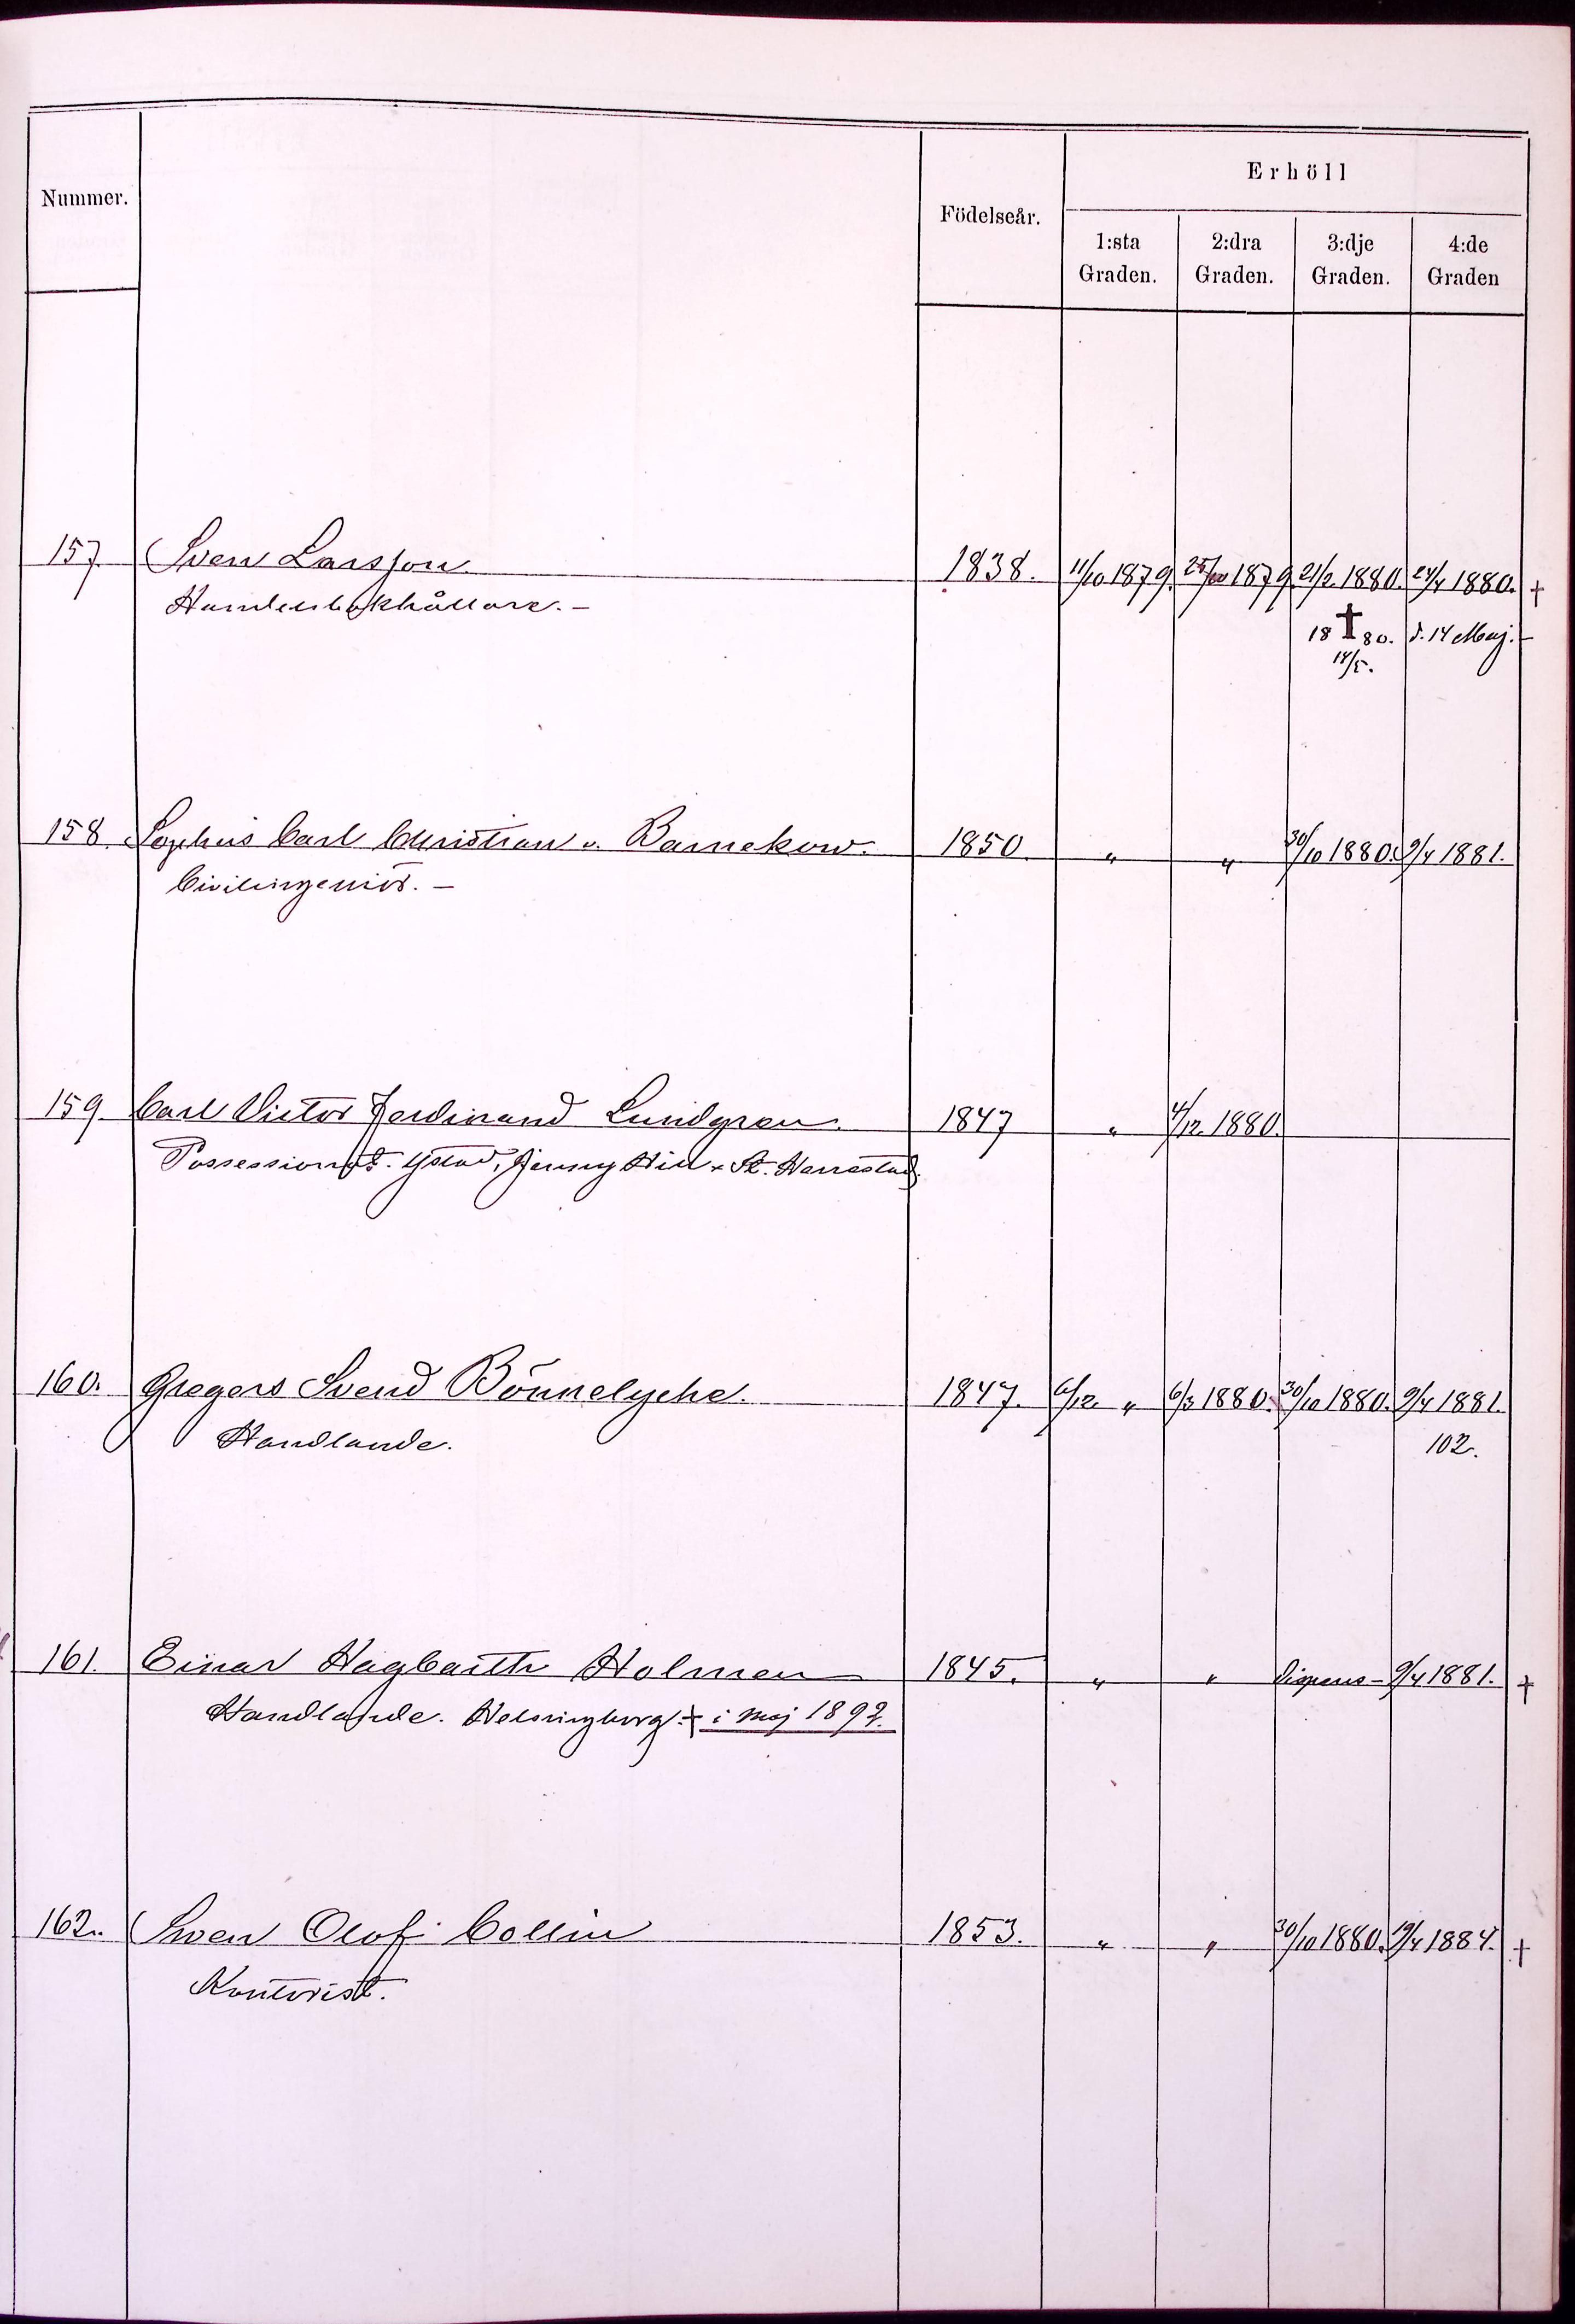 Nummer.
Födelseår.
Erhöll
1:sta Graden.
2:dra Graden.
3:dje Graden.
4:de Graden
157. Sven Larsson 1838. 11/10 1879. 25/10 1879. 21/2 1880. 24/4 1880. †
Handelsbokhållare.–
18 † 80. d. 14 Maj.–
14/5.
158. Sophus Carl Christian v. Barnekow. 1850 „ „ 30/10 1880. 9/4 1881.
Civilingeniör.–
159. Carl Victor Ferdinand Lundgren. 1847 „ 4/12 1880.
Possessionat. Ystad, Jenny Hill St. Herrestad.
160. Gregers Svend Bönnelyche. 1847. 6/12 „ 6/3 1880. 30/10 1880. 9/4 1881.
Handlande.
102.
161. Einar Hagbarth Holmen 1845. „ „ dispens– 9/4 1881. †
Handlande. Helsingborg. † i maj 1892.
162. Sven Olof Collin 1853. „ „ 30/10 1880. 19/4 1884. †
Kontorist.